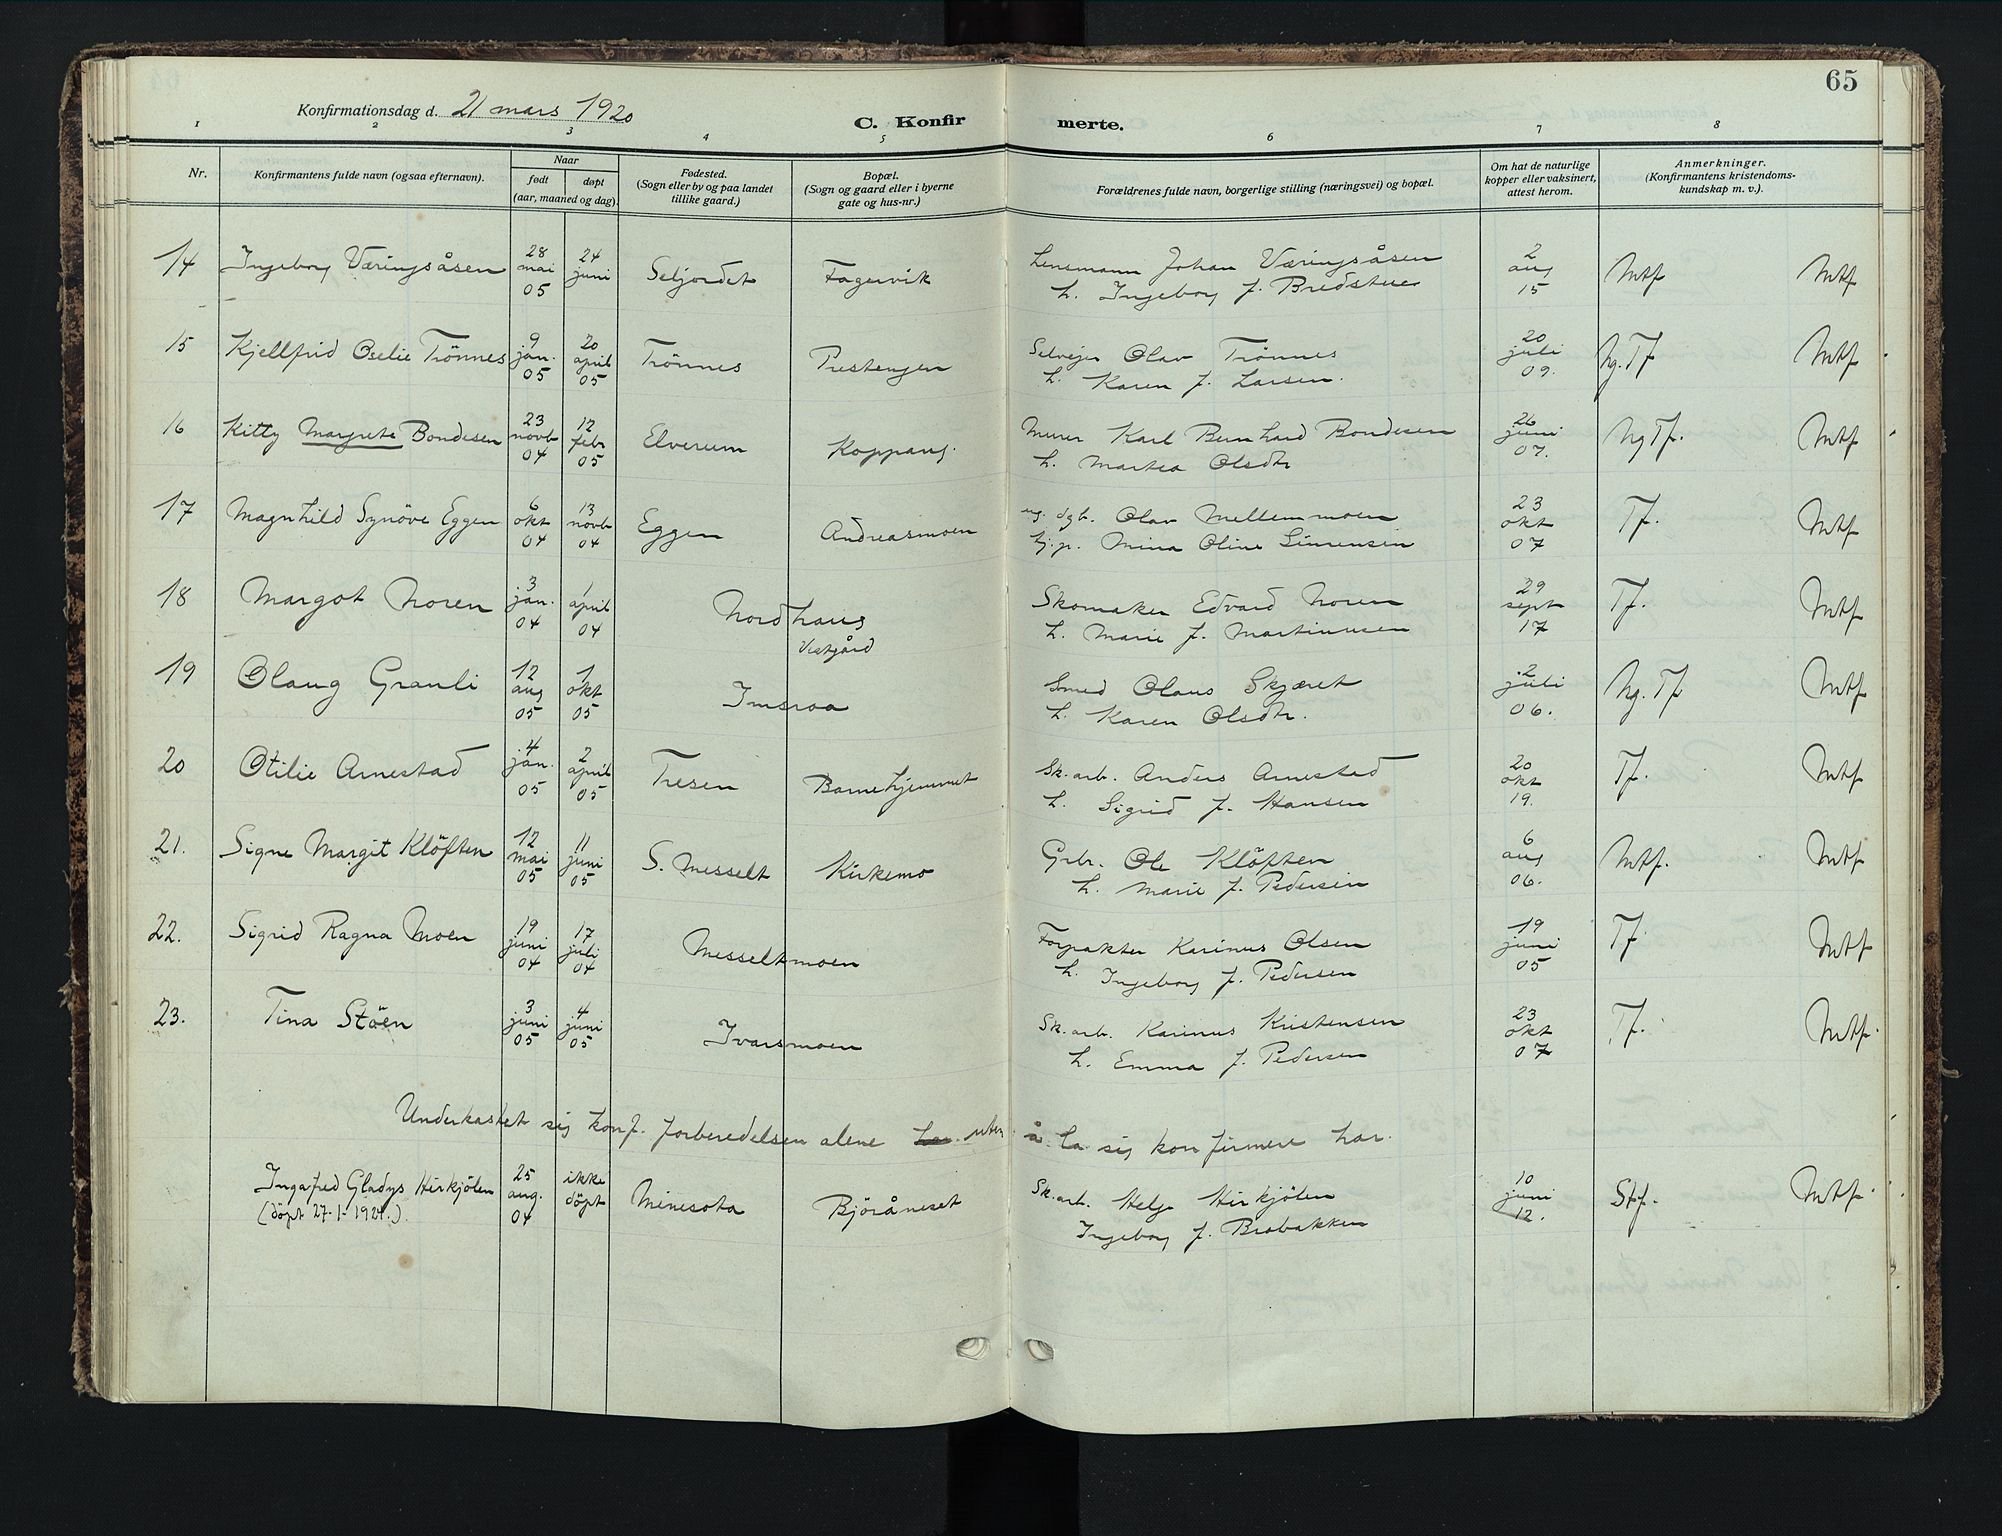 65
Konfirmationsdag d. 21 mars 1920
C. Konfirmerte.
1 2 3 4 5 6 7 8
Nr.
Konfirmantens fulde navn (ogsaa efternavn).
Naar
født døpt
(aar, maaned og dag).
Fødested.
(Sogn eller by og paa landet
tillike gaard.)
Bopæl.
(Sogn og gaard eller i byerne
gate og hus-nr.)
Forældrenes fulde navn, borgerlige stilling (næringsvei) og bopæl.
Om hat de naturlige
kopper eller vaksinert,
attest herom.
Anmerkninger.
(Konfirmantens kristendoms-
kundskap m. v.).
14 Ingeborg Væringsåsen 28 mai 05 24 juni Seljordet Fagervik Lensmann Johan Væringsåsen 2 aug 15 Mtf Mtf
h. Ingeborg f. Bredstue
15 Kjellfrid Oselie Trönnes 9 jan. 05 20 april 05 Trönnes Prestengen Selveier Olav Trönnes 20 juli 09. Ng. Tf Mtf
h. Karen f. Larsen.
16 Kitty Margrete Bondesen 23 novb 04 12 febr 05 Elverum Koppang. Murer Karl Bernhard Bondesen 26 juni 07. Ng Tf. Mtf
h. Martea Olsdtr
17 Magnhild Synöve Eggen 6 okt 04 13 novb 04 Eggen Andreasmoen ug. dgb. Olav Mellemmoen 23 okt 07 Tf. Mtf
tj.p. Mina Oline Simensen
18 Margot Noren 3 jan. 04 1 april 04 Nordhaug Skomaker Edvard Noren 29 sept 17 Tf. Mtf
Vestgård h. Marie f. Martinusen
19 Olaug Granli 12 aug 05 1 okt 05 Imsroa Smed Olaus Skjæret 2 juli 06. Ng. Tf Mtf
h. Karen Olsdtr.
20 Otilie Arnestad 4 jan. 05 2 april 05 Tresen Barnehjemmet Sk. arb. Anders Arnestad 20 okt 19. Tf. Mtf
h. Sigrid f. Hansen
21. Signe Margit Klöften 12 mai 05 11 juni 05 S. Messelt Kirkemo Grbr. Ole Klöften 6 aug 06. Mtf. Mtf
h. Marie f. Pedersen
22. Sigrid Ragna Moen 19 juni 04 17 juli 04 Messeltmoen Forpakter Karinus Olsen 19 juni 05 Tf Mtf
h. Ingeborg f. Pedersen
23. Tina Stöen 3 juni 05 4 juni 05 Ivarsmoen Sk. arb. Karinus Kristensen 23 okt 07 Tf. Mtf.
h. Emma f. Pedersen
Underkastet sig konf. forberedelsen alene uten å la sig konfirmere har.
Ingafred Gladys Hirkjölen 25 aug. 04 ikke döpt Minesota Björåneset Sk. arb. Helge Hirkjölen 10 juni 12. Stf. Mtf
(döpt 27-1-1921.) Ingeborg f. Brobakken